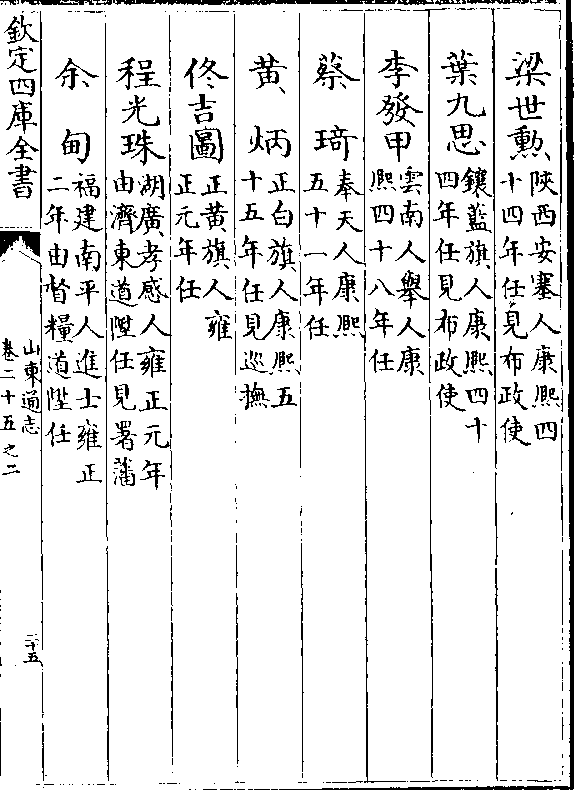 梁世勲陜西安塞人康熙四十四年任見布政使
葉九思鑲藍旗人康熙四十四年任見布政使
李發甲雲南人舉人康熙四十八年任
蔡琦奉天人康熙五十一年任
黄炳正白旗人康熙五十五年任見巡撫
佟吉圖正黄旗人雍正元年任
程光珠湖廣孝感人雍正元年由濟東道陞任見署藩
余甸福建南平人進士雍正二年由督糧道陞任
欽定四庫全書
山東通志
卷二十五之二
二十五